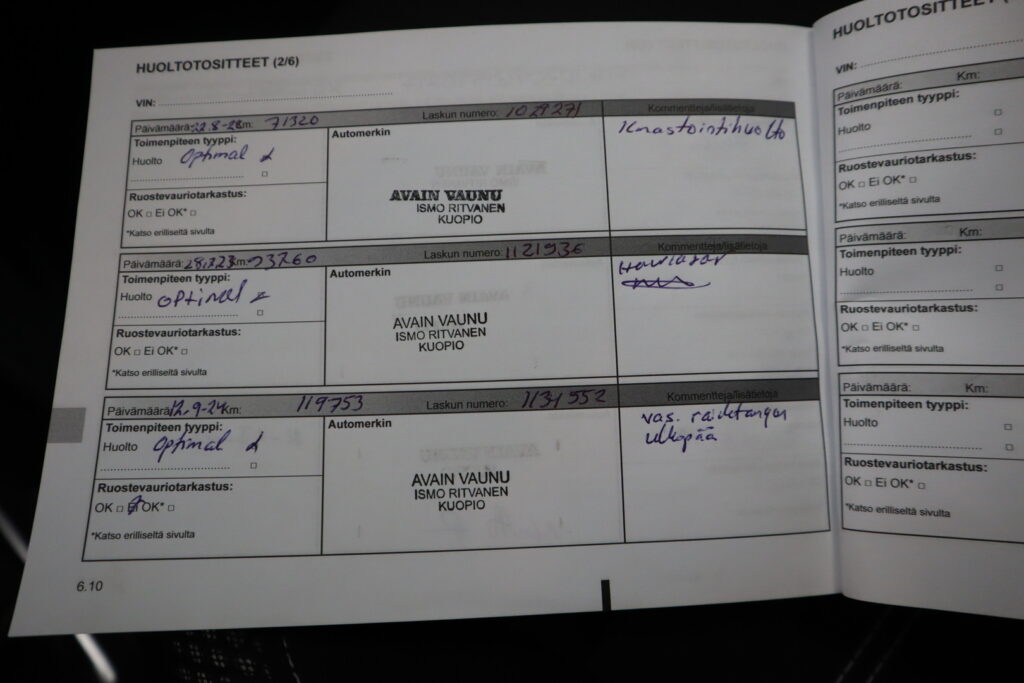 HUOLTOTOSITTEET (2/6)
VIN:
Päivämäärä: km: 71320 Laskun numero: Kommentteja/lisätietoja
Toimenpiteen tyyppi:
Huolto Optimal
Automerkin
AVAIN VAUNU
ISMO RITVANEN
KUOPIO
Ilmastointihuolto
Ruostevauriotarkastus:
OK □ Ei OK* □
*Katso erilliseltä sivulta
Päivämäärä: km: Laskun numero: 1121936 Kommentteja/lisätietoja
Toimenpiteen tyyppi:
Huolto Optimal
Automerkin
AVAIN VAUNU
ISMO RITVANEN
KUOPIO
Ruostevauriotarkastus:
OK □ Ei OK* □
*Katso erilliseltä sivulta
Päivämäärä: 12.9-24 km: 119753 Laskun numero: 1131552 Kommentteja/lisätietoja
Toimenpiteen tyyppi:
Huolto Optimal
Automerkin
AVAIN VAUNU
ISMO RITVANEN
KUOPIO
vas. raidetangon
ulkopää
Ruostevauriotarkastus:
OK □ Ei OK* □
*Katso erilliseltä sivulta
6.10
HUOLTOTOSITTEET (
VIN:
Päivämäärä: Km:
Toimenpiteen tyyppi:
Huolto
Ruostevauriotarkastus:
OK □ Ei OK* □
*Katso erilliseltä sivulta
Päivämäärä: Km:
Toimenpiteen tyyppi:
Huolto
Ruostevauriotarkastus:
OK □ Ei OK* □
*Katso erilliseltä sivulta
Päivämäärä: Km:
Toimenpiteen tyyppi:
Huolto
Ruostevauriotarkastus:
OK □ Ei OK* □
*Katso erilliseltä sivulta